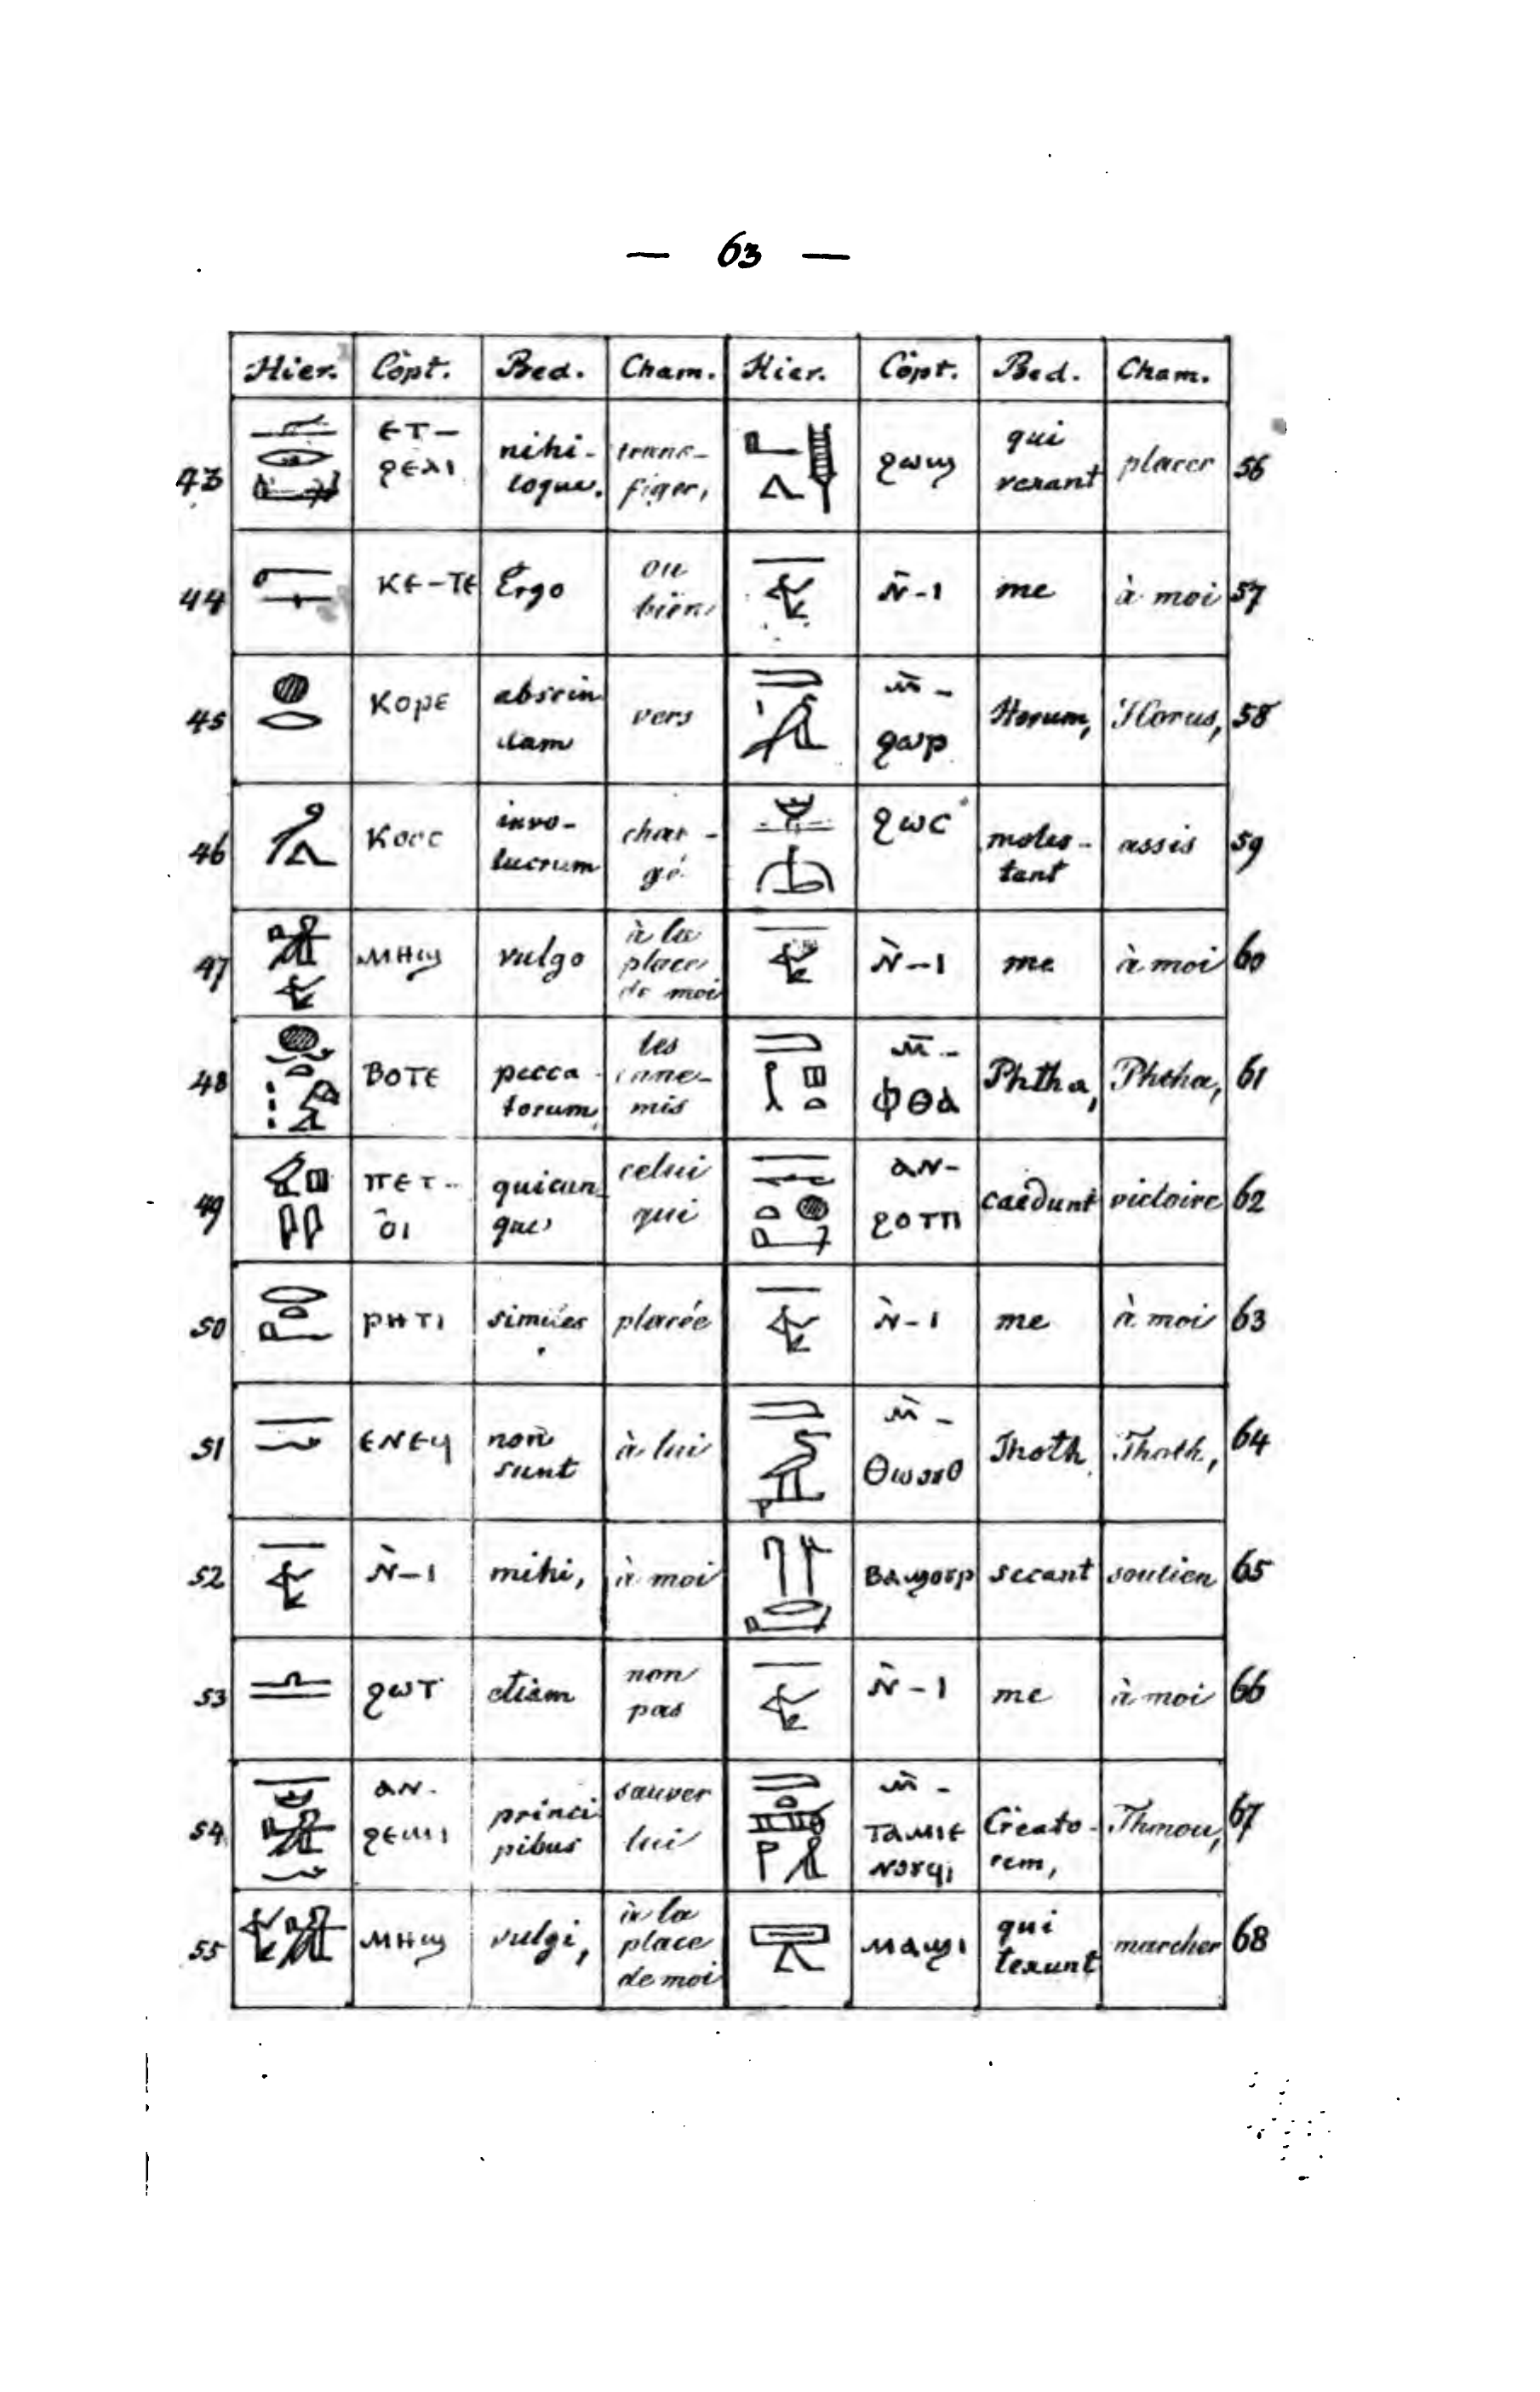 — 63 —
Hier. Copt. Bed. Cham. Hier. Copt. Bed. Cham.
43 ⲉⲧ- ϩⲉⲗⲓ nihi- loque. trans- figer, ϩⲱϣ qui vexant placer 56
44 ⲕⲉ-ⲧⲉ Ergo ou bien ⲛ̀-ⲓ me à moi 57
45 ⲕⲟⲣⲉ abscin dam vers ⲙ̄- ϩⲱⲣ Horum, Horus, 58
46 ⲕⲟⲥⲥ invo- lucrum char- gé ϩⲱⲥ moles- tant assis 59
47 ⲙⲏϣ vulgo à la place de moi ⲛ̀-ⲓ me à moi 60
48 ⲃⲟⲧⲉ pecca- torum les enne- mis ⲙ̄- ⲫⲑⲁ Phtha, Phtha, 61
49 ⲡⲉⲧ- ⲟ̂ⲓ quicun- que celui qui ⲁⲛ- ϩⲟⲧⲡ caedunt victoire 62
50 ⲣⲏⲧⲓ similes placée ⲛ̀-ⲓ me à moi 63
51 ⲉⲛⲉϥ non sunt à lui ⲙ̀- ⲑⲱⲟⲩⲑ Thoth Thoth, 64
52 ⲛ̀-ⲓ mihi, à moi ⲃⲁϣⲟⲩⲣ secant soutien 65
53 ϩⲱⲧ etiam non pas ⲛ̀-ⲓ me à moi 66
54 ⲁⲛ- ϩⲉⲙⲓ princi pibus sauver lui ⲙ̄- ⲧⲁⲙⲓⲉ ⲛⲟⲩϥⲓ Creato- rem, Thmou, 67
55 ⲙⲏϣ vulgi, à la place de moi ⲙⲁϣⲓ qui texunt marcher 68